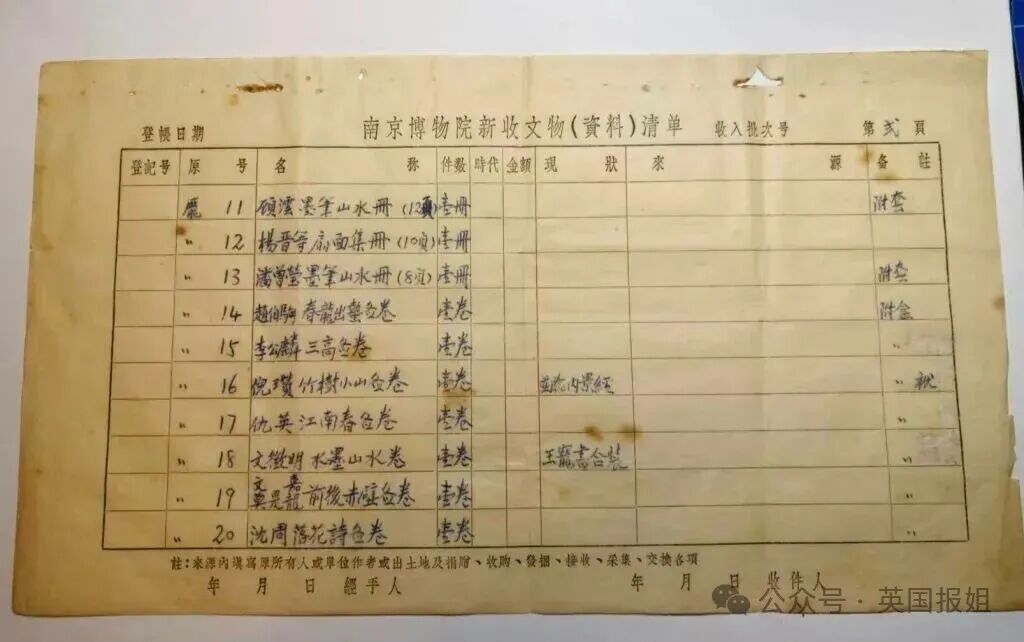 南京博物院新收文物(資料)清单
登帳日期 收入批次号 第 弍 頁
登記号 原号 名称 件数 時代 金額 現状 來源 备註
龐 11 顾澐墨筆山水冊(12頁) 壹冊 附套
〃 12 楊晋等扇面集冊(10頁) 壹冊
〃 13 潘曾瑩墨筆山水冊(8頁) 壹冊 附套
〃 14 趙伯駒 春龍出蟄啚卷 壹卷 附盒
〃 15 李公麟 三高啚卷 壹卷 〃
〃 16 倪瓚 竹樹小山啚卷 壹卷 内景經 〃
〃 17 仇英 江南春啚卷 壹卷 〃
〃 18 文徵明 水墨山水卷 壹卷 王寵書合裝 〃
〃 19 文嘉 莫是龍 前後赤壁啚卷 壹卷 〃
〃 20 沈周 落花詩啚卷 壹卷 〃
註:來源內填寫原所有人或單位作者或出土地及捐贈、收购、發掘、接收、采集、交換各項
年 月 日 經手人 年 月 日 收件人
公众号·英国报姐